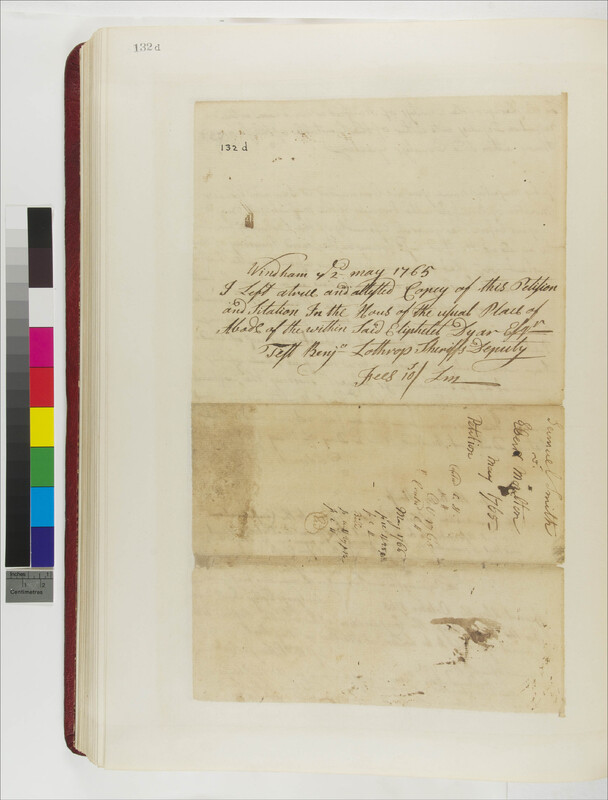 132 d
132 d
Windham ye 2d may 1765
I Left atrue and attested Copey of this Petision
and Sitation In the Hous of the usual Place of
Abode of the within Said Eliphelet Dyar Esqr
Test Benjn Lothrop Sheriffs Deputy
Fees 10/ Lm
Samuel Smith
vs
Eben Moulton
Petition
May 1765
Oct 1765
May 1766
Inches
1
2
Centimetres